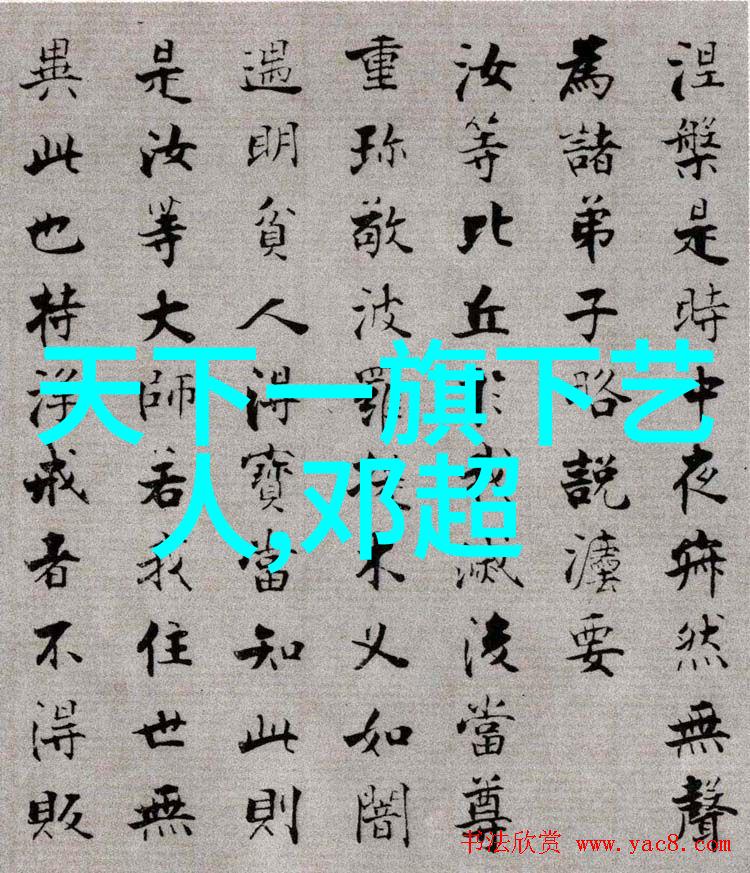 涅槃是時中夜寂然無聲
為諸弟子略説灋要
汝等比丘於我滅後當尊
重珍敬波羅提木叉如闇
遇明貧人得寶當知此則
是汝等大師若我住世無
異此也持淨戒者不得販
天下一旗下艺
人,邓超
书法欣赏 www.yac8.com